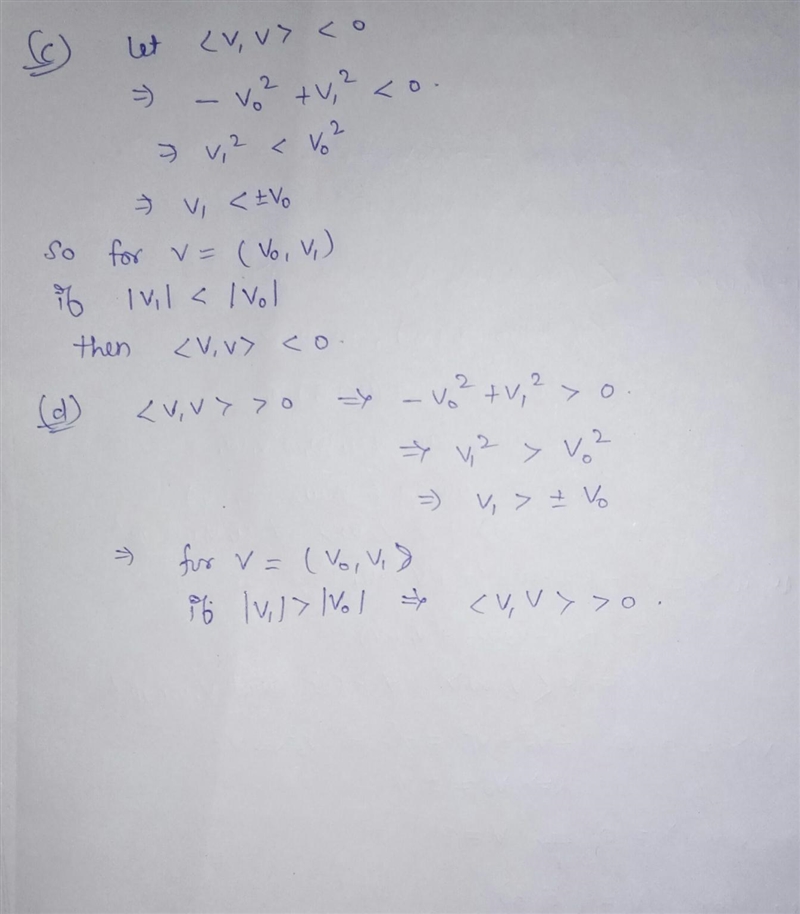 (c) let <v, v> < 0
⇒ - v₀² + v₁² < 0.
⇒ v₁² < v₀²
⇒ v₁ < ±v₀
So for v = (v₀, v₁)
if |v₁| < |v₀|
then <v, v> < 0.
(d) <v, v> > 0 ⇒ - v₀² + v₁² > 0.
⇒ v₁² > v₀²
⇒ v₁ > ± v₀
⇒ for v = (v₀, v₁)
if |v₁| > |v₀| ⇒ <v, v> > 0.